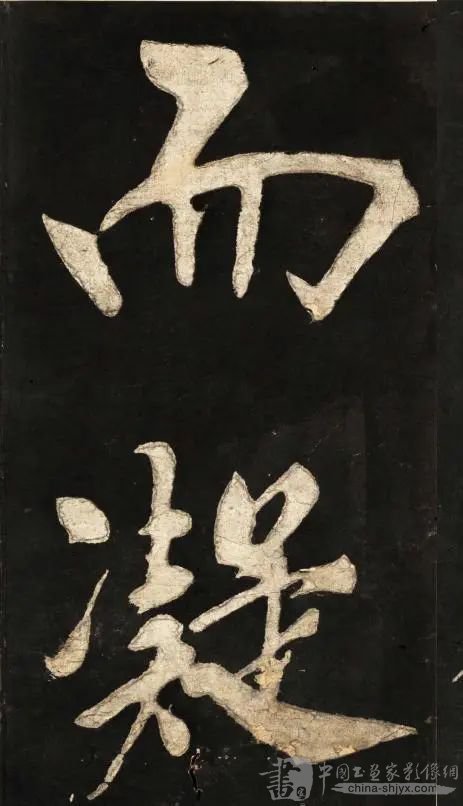 而
凝
畫 中国书画家影像網
www.china-shjyx.com